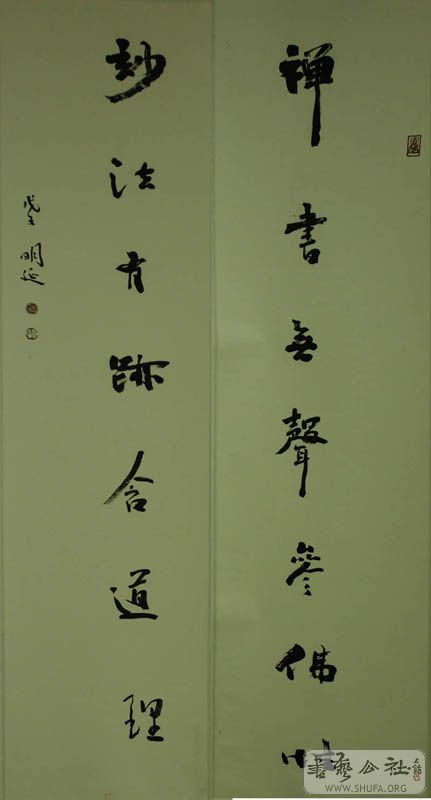 禅書無聲參佛
妙法有跡合道理
明延
書藝公社
WWW.SHUFA.ORG